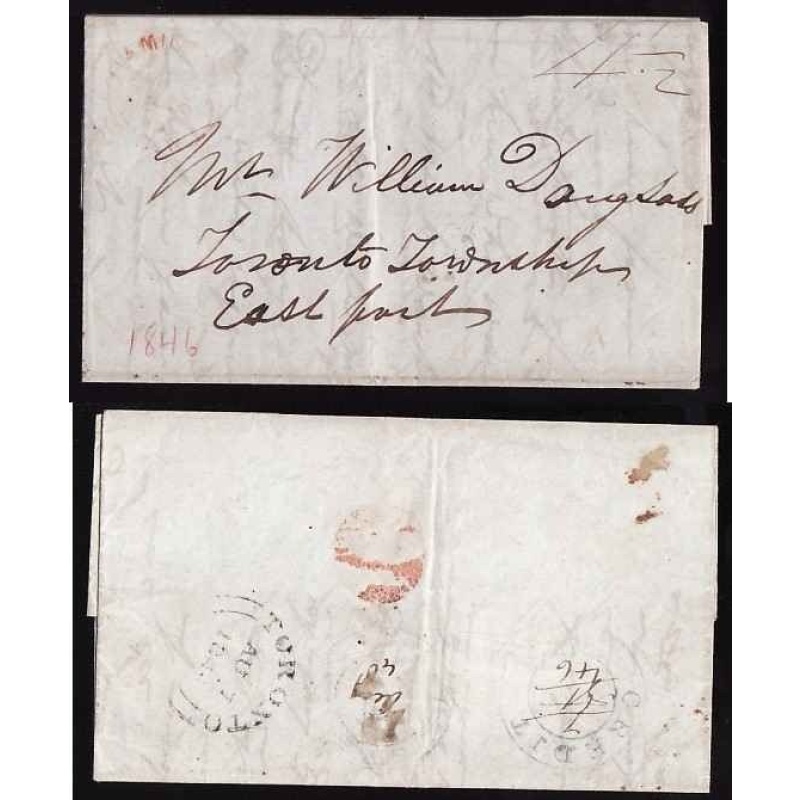 4½
Mr William Douglass
Toronto Township
East part
1846
TORONTO
AU
CREDIT
46